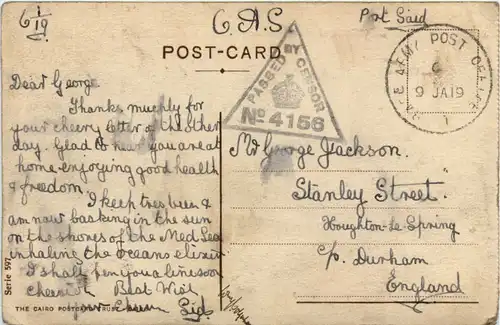 6/1/19
O.A.S.
Port Said
POST-CARD
PASSED BY CENSOR
No 4156
BASE ARMY POST OFFICE
9 JA 19
Dear George
Thanks muchly for
your cheery letter of the other
day. Glad to hear you are at
home enjoying good health
& freedom.
I keep tres bien &
am now basking in the sun
on the shores of the Med Sea
inhaling the oceans elixir
I shall pen you a line soon
cheerio! Best Wish
your chum Sid
Mr George Jackson.
Stanley Street.
Houghton-le-Spring
c/o. Durham
England
Serie 597
THE CAIRO POSTCARD TRUST